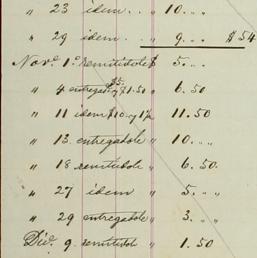 " 23 idem . . " 10 . . .
" 29 idem . . " 9 . . . $ 54
Nov.e 1.o remitidole $ 5 . . .
" 4 entreg.e $5. y $1.50 " 6.50
" 11 idem $10 y 1½ " 11.50
" 13 entregatole " 10 . . .
" 18 remitidole " 6.50
" 27 idem " 5 . . .
" 29 entregadole " 3 . . .
Dic.e 9 remitidole " 1.50